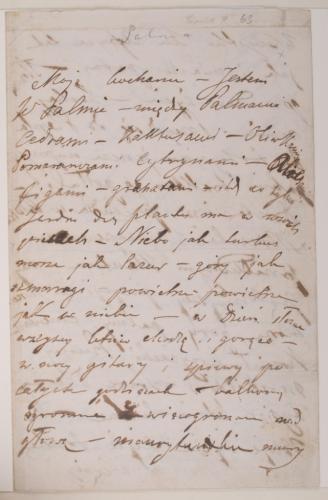 Palma
63
Moje kochanie – Jestem
w Palmie – między Palmami
Cedrami – kaktusami – Oliwkami
Pomarańczami Cytrynami –
figami – granatami –
Jardin des plantes ma w swoich
piecach – Niebo jak turkus
morze jak lazur – góry jak
szmaragd – powietrze
jak w niebie – w dzień słońce
wszyscy letnio chodzą i gorąco –
w nocy gitary i śpiewy po
całych godzinach – balkony
z winogronami nad
głową – mauretańskie mury